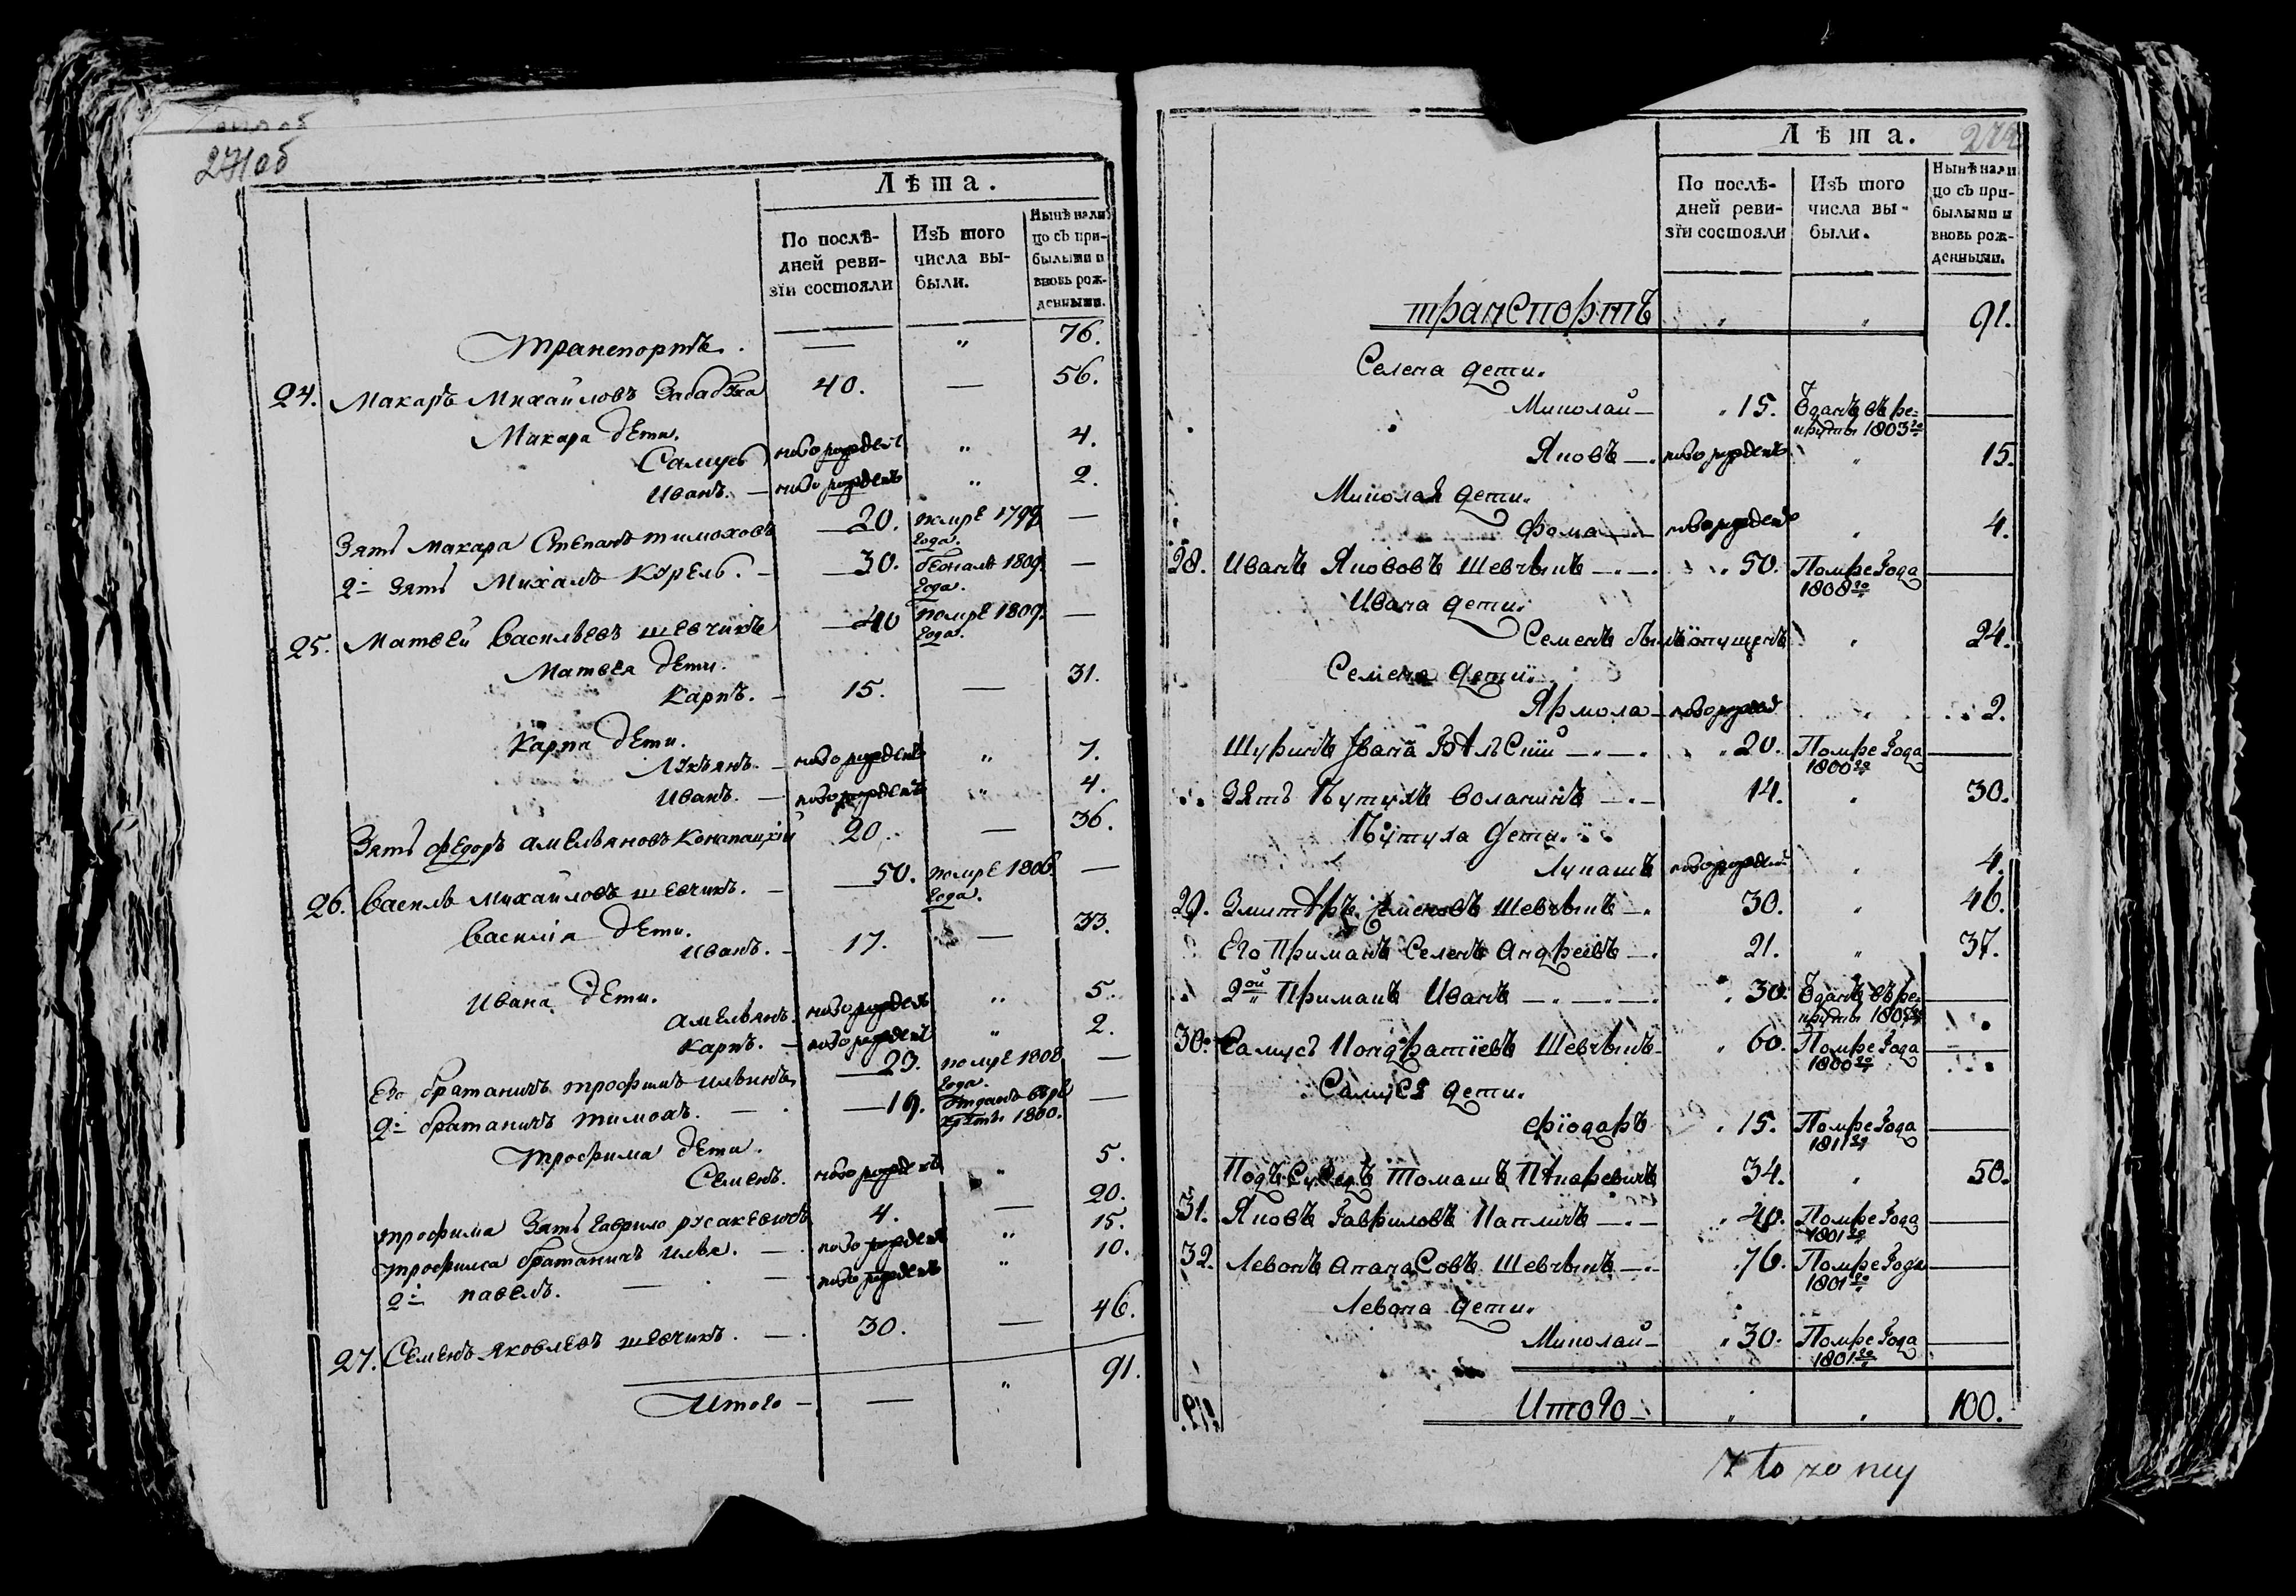 271об
Лѣта.
По послѣ-
дней реви-
зїи состояли
Изъ того
числа вы-
были.
Нынѣ нали
цо съ при-
былыми и
вновь рож-
денными.
Транспортъ. — " 76.
24. Макаръ Михайловъ 40. — 56.
Макара дети.
Самусь новорожденъ " 4.
Иванъ. — новорожденъ " 2.
Зять Макара Степанъ Тимоховъ — 20. помре 1799 —
года.
2й зять Михалъ Курель. — 30. бежалъ 1809. —
года.
25. Матвей Васильевъ Шевчикъ — 40 помре 1809. —
года.
Матвея дети.
Карпъ. — 15. — 31.
Карпа дети.
Лукъянъ. — новорожденъ " 7.
Иванъ. — новорожденъ " 4.
Зять Федоръ Амельяновъ 20. — 36.
26. Василь Михайловъ Шевчикъ. — 50. помре 1806. —
года.
Василїя дети.
Иванъ. — 17. — 33.
Ивана дети.
Амельянъ. новорожденъ " 5.
Карпъ. — новорожденъ " 2.
Его братаничъ Трофимъ Ильинъ — 23. помре 1808 —
года.
2й братаничъ Тимохъ. — — 19. отданъ въ ре —
круты 1800.
Трофима дети.
Семенъ. новорожденъ " 5.
Трофима Зять Гаврило Русакевичъ 4. — 20.
Трофима братаничъ Илья. — новорожденъ " 15.
2й Павелъ. — — новорожденъ " 10.
27. Семенъ Яковлевъ Шевчикъ. — 30. — 46.
Итого — — " 91.
272
Лѣта.
По послѣ-
дней реви-
зїи состояли
Изъ того
числа вы-
были.
Нынѣ нали
цо съ при-
былыми и
вновь рож-
денными.
транспортъ " " 91.
Семена дети.
Миколай — 15. Ѿданъ въ ре- —
круты 1803го
Яковъ — новорожденъ " 15.
Миколая дети.
Фома — новорожденъ " 4.
28. Иванъ Якововъ Шевчикъ — 50. Помре Года —
1808го
Ивана дети.
Семенъ былъ опущенъ " 24.
Семена дети.
Ярмола — новорожд " 2.
Шуринъ Ивана — 20. Помре Года —
1800го
Зять 14. " 30.
дети.
Лукашъ новорожден " 4.
29. Змитръ Семеновъ Шевчикъ — 30. " 46.
Его Примакъ Семенъ Андреевъ — 21. " 37.
2ой Примакъ Иванъ — 30. Ѿданъ въ ре- —
круты
30. Самусь Кондратїевъ Шевчикъ — 60. Помре Года —
1800го
Самуся дети.
Фїодаръ 15. Помре Года —
1811го
Подъсуседъ Томашъ 34. " 50.
31. Яковъ Гавриловъ — 40. Помре Года —
1801го
32. Левонъ АпанаСовъ Шевчикъ — 76. Помре Года —
1801го
Левона дети.
Миколай — 30. Помре Года —
1801го
Итого — " " 100.